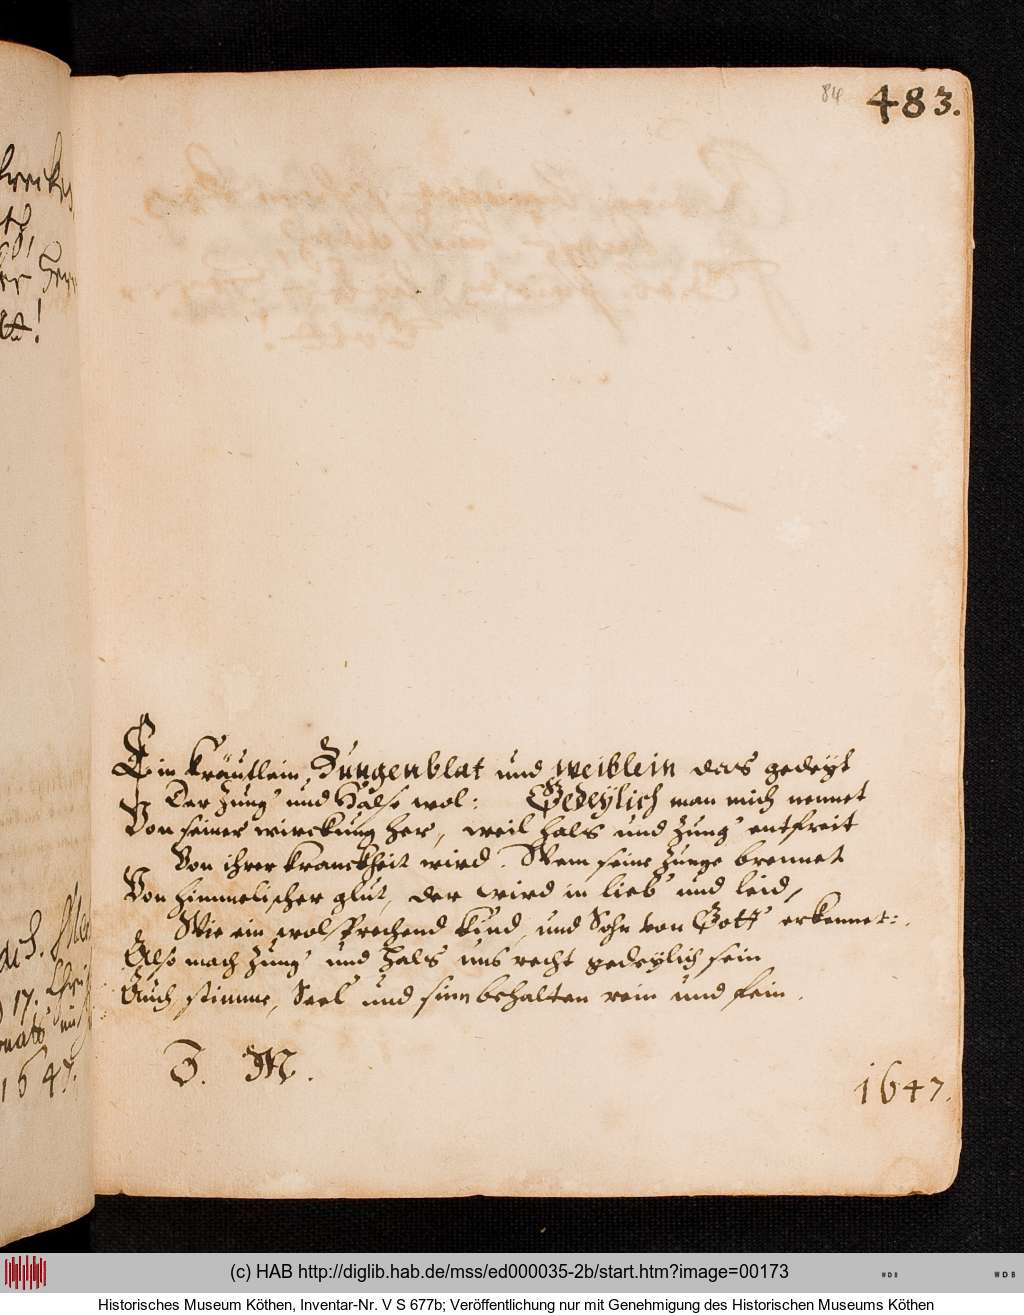 84
483.
Ein kräutlein, Zungenblat und weiblein das gedeyt
Der Zung' und Halse wol: Gedeylich man mich nennet
Von seiner wirckung her, weil hals und Zung' entfreit
Von ihrer kranckheit wird. Wem seine Zunge brennet
Von himmelischer glut, der wird in lieb' und leid,
Wie ein wolsprechend kind, und Sohn von Gott' erkennet:
Also mach Zung' und hals uns recht gedeylich sein
Auch stimme, Seel' und sinn behalten rein und fein.
M.
1647.
1647.
(c) HAB http://diglib.hab.de/mss/ed000035-2b/start.htm?image=00173
WDB
WDB
Historisches Museum Köthen, Inventar-Nr. V S 677b; Veröffentlichung nur mit Genehmigung des Historischen Museums Köthen